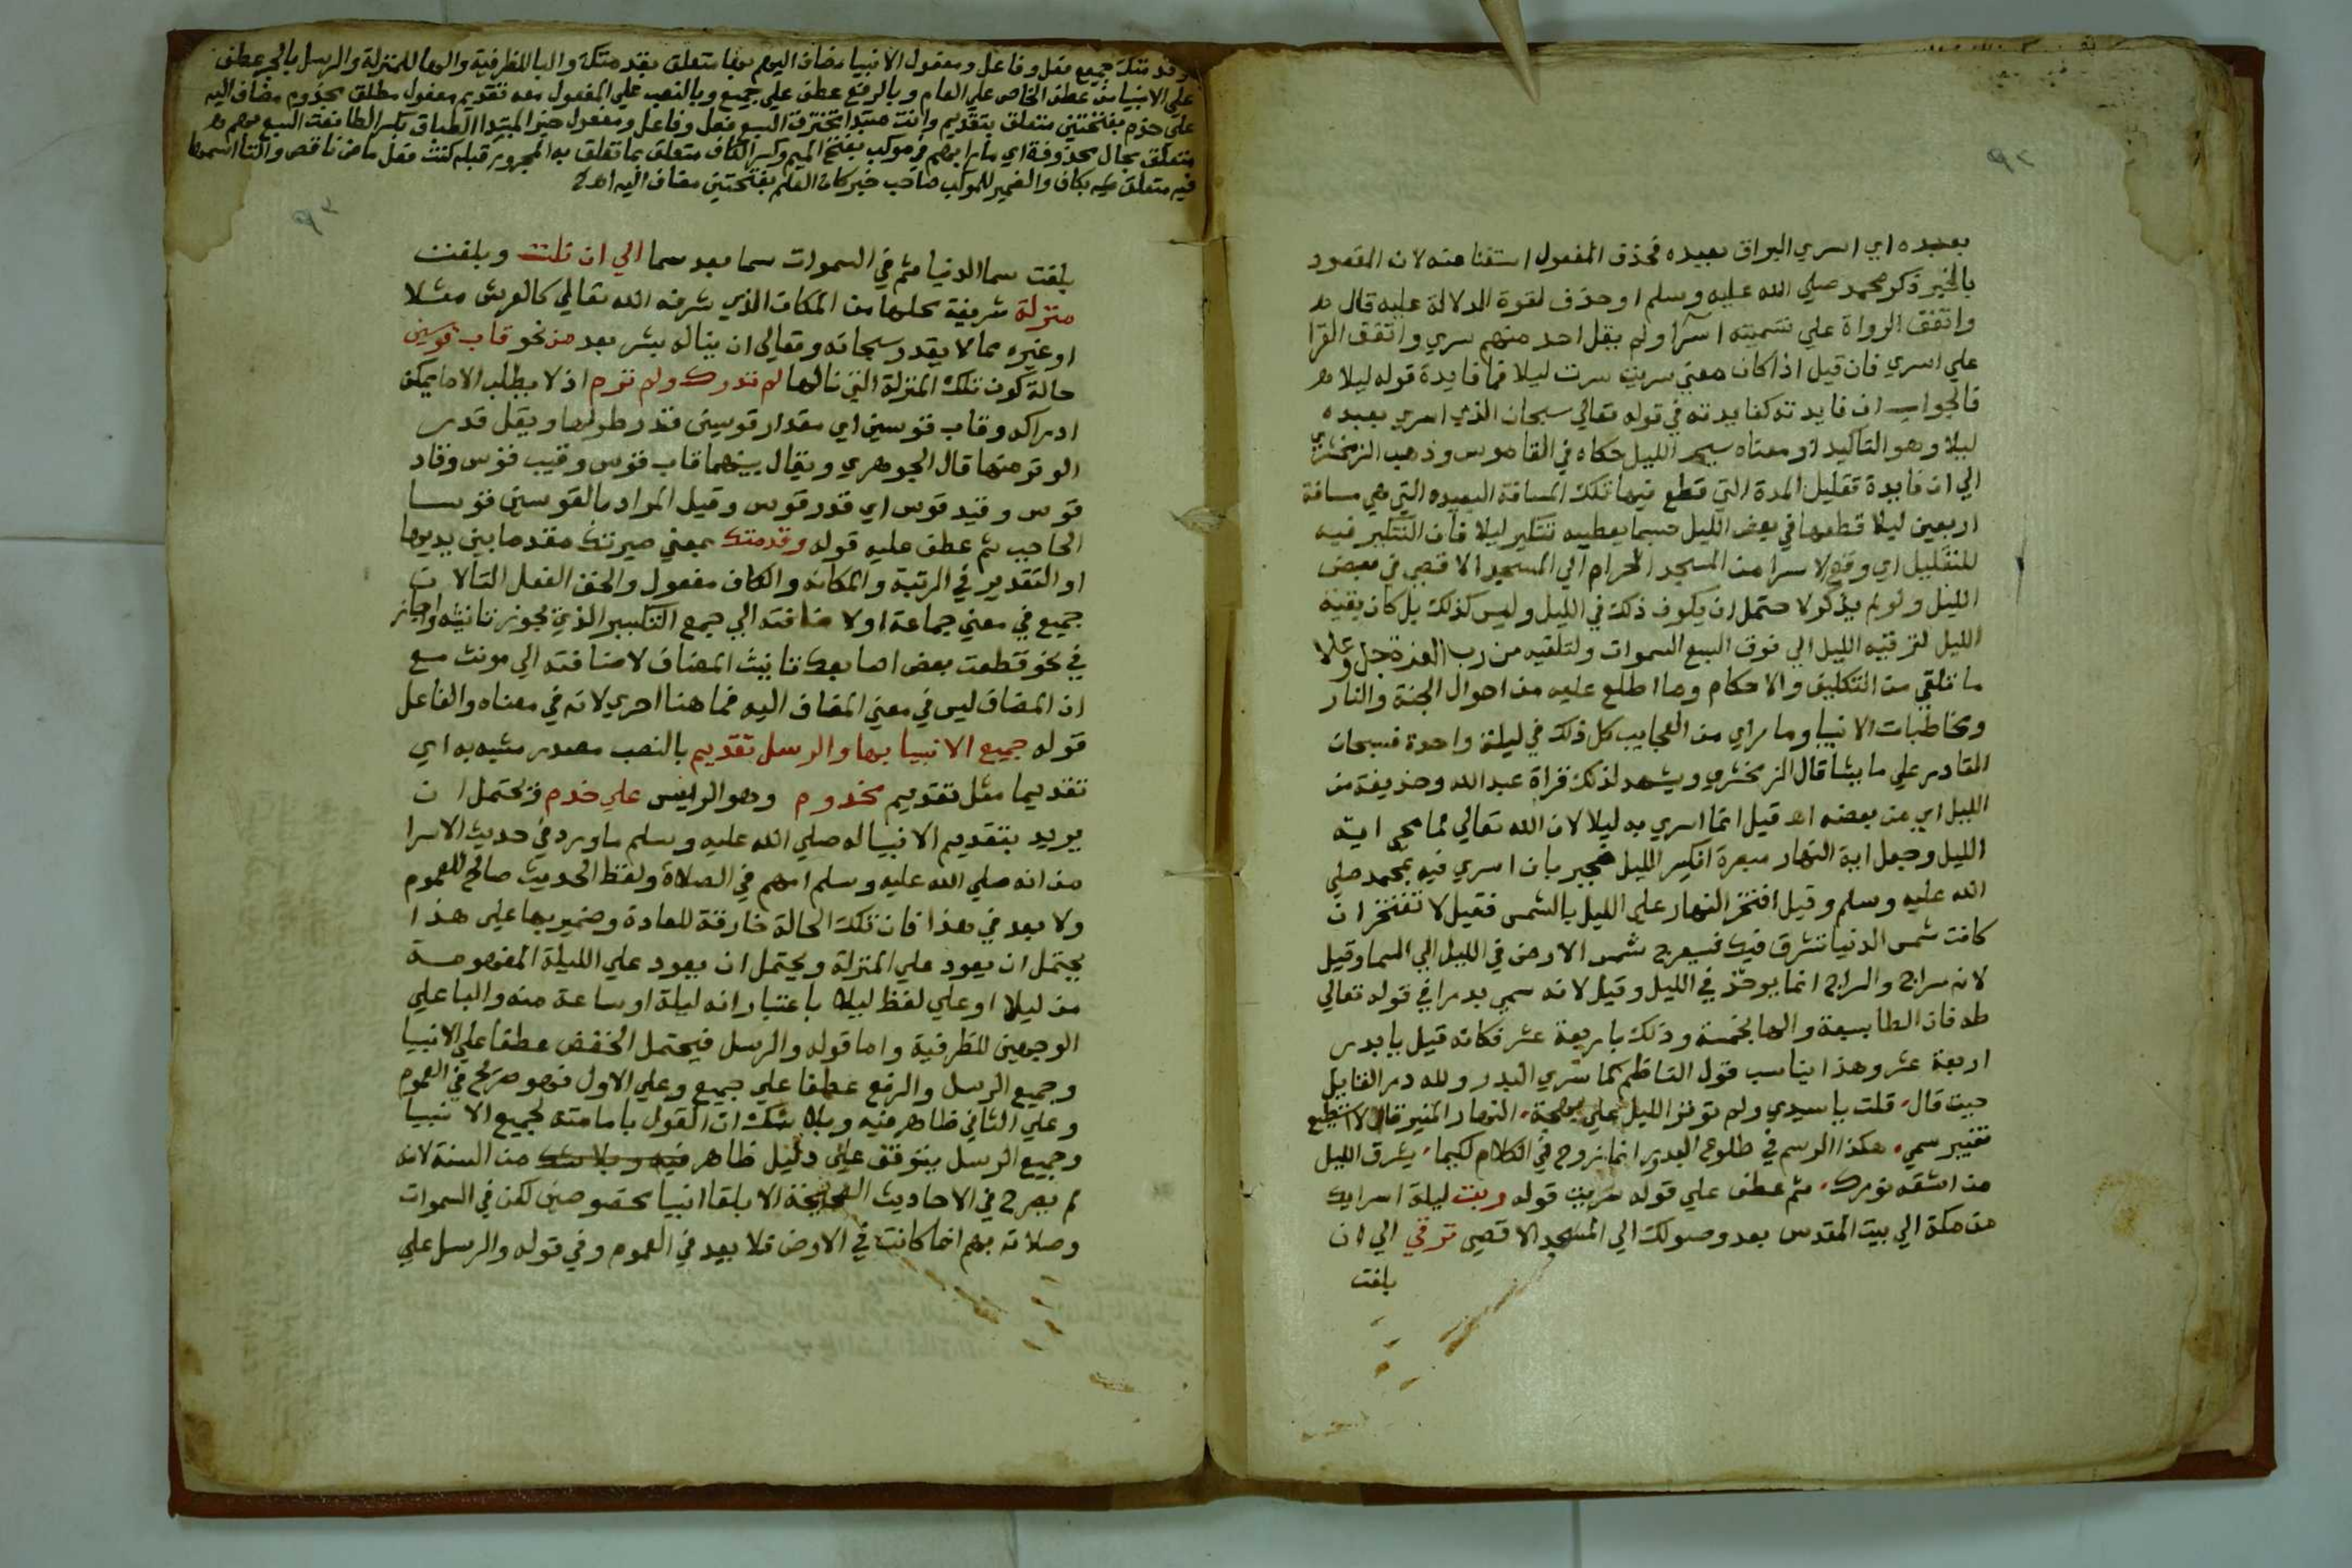 ٩٢
بعبده اي اسري البراق بعبده فحذف المفعول استغنا عنه لان المقصود
بالخبر ذكر محمد صلي الله عليه وسلم او حذف لقوة الدلالة عليه قال
واتفق الرواة علي تسميته اسرا ولم يقل احد منهم سري واتفق القرا
علي اسري فان قيل اذا كان معني سريت سرت ليلا فما فايدة قوله ليلا
فالجواب ان فايدته كفايدته في قوله تعالي سبحان الذي اسري بعبده
ليلا وهو التاكيد او معناه سير الليل حكاه في القاموس وذهب الزمخشري
الي ان فايدة تقليل المدة التي قطع فيها تلك المسافة البعيده التي هي مسافة
اربعين ليلة قطعها في بعض الليل حسبما يعطيه تنكير ليلا فان التنكير فيه
للتقليل اي وقع الاسرا من المسجد الحرام الي المسجد الاقصي في بعض
الليل ولو لم يذكر لاحتمل ان يكون ذلك في الليل وليس كذلك بل كان بقية
الليل لترقيه الليل الي فوق السبع السموات ولتلقيه من رب العزة جل وعلا
ما تلقي من التكليف والاحكام وما اطلع عليه من احوال الجنة والنار
ومخاطبات الانبيا وما راي من العجايب كل ذلك في ليلة واحدة فسبحان
القادر علي ما يشا قال الزمخشري ويشهد لذلك قراة عبد الله وحذيفة من
الليل اي من بعضه اه قيل انما اسري به ليلا لان الله تعالي لما محي اية
الليل وجعل اية النهار مبصرة انكسر الليل فجبر بان اسري فيه بمحمد صلي
الله عليه وسلم وقيل افتخر النهار علي الليل بالشمس فقيل لا تفتخر ان
كانت شمس الدنيا تشرق فيك فسيعرج شمس الارض في الليل الي السما وقيل
لانه سراج والسراج انما يوقد في الليل وقيل لانه سمي بدرا في قوله تعالي
طه فان الطا بسبعة والها بخمسة وذلك باربعة عشر فكانه قيل يا بدر
اربعة عشر وهذا يناسب قول الناظم كما سري البدر ولله در القايل
حيث قال قلت يا سيدي ولم توثر الليل علي بهجة النهار المنير قال لا استطيع
تغيير رسمي هكذا الرسم في طلوع البدور انما نروح في الظلام لكيما يشرق الليل
من اشعة نورك ثم عطف علي قوله سريت قوله وبت ليلة اسرايك
من مكة الي بيت المقدس بعد وصولك الي المسجد الاقصي ترقي الي ان
بلغت
وقدمتك جميع فعل وفاعل ومفعول الانبيا مضاف اليهم بها متعلق بقدمتك والبا للظرفية والها للمنزلة والرسل بالجر عطف
علي الانبيا من عطف الخاص علي العام وبالرفع عطف علي جميع وبالنصب علي المفعول معه تقديم مفعول مطلق مخدوم مضاف اليه
علي خدم بفتحتين متعلق بتقديم وانت مبتدا تخترق السبع فعل وفاعل ومفعول خبر المبتدا الطباق بكسر الطا نعت السبع بهم
متعلق بحال محذوفة اي مارا بهم في موكب بفتح الميم وكسر الكاف متعلق بما تعلق به المجرور قبله كنت فعل ماض ناقص والتا اسمها
فيه متعلق بكان والضمير للموكب صاحب خبر كان العلم بفتحتين مضاف اليه اه
٩٣
بلغت سما الدنيا ثم في السموات سما بعد سما الي ان نلت وبلغت
منزلة شريفة محلها من المكان الذي شرفه الله تعالي كالعرش مثلا
او غيره مما لا يقدر سبحانه وتعالي ان يناله بشر بعد من نحو قاب قوسين
حالة كون تلك المنزلة التي نالها لم تدرك ولم ترم اذ لا يطلب الا ما يمكن
ادراكه وقاب قوسين اي مقدار قوسين قدر طولها ويقل قدر
الوتر منها قال الجوهري ويقال بينهما قاب قوس وقيب قوس وقاد
قوس وقيد قوس اي قدر قوس وقيل المراد بالقوسين قوسا
الحاجب ثم عطف عليه قوله وقدمتك بمعني صيرتك مقدما بين يديها
او التقدير في الرتبة والمكانة والكاف مفعول والحق الفعل التا لان
جميع في معني جماعة او لاضافته الي جمع التكسير الذي يجوز تانيثه واجاز
في نحو قطعت بعض اصابعك تانيث المضاف لاضافته الي مونث مع
ان المضاف ليس في معني المضاف اليه فما هنا احري لانه في معناه والفاعل
قوله جميع الانبيا بها والرسل تقديم بالنصب مصدر مشبه به اي
تقديما مثل تقديم مخدوم وهو الرايس علي خدم ويحتمل ان
يريد بتقديم الانبيا له صلي الله عليه وسلم ما ورد في حديث الاسرا
من انه صلي الله عليه وسلم امهم في الصلاة ولفظ الحديث صالح للعموم
ولا بعد في هذا فان تلك الحالة خارقة للعادة وضمير بها علي هذا
يحتمل ان يعود علي المنزلة ويحتمل ان يعود علي الليلة المفهومة
من ليلا او علي لفظ ليلا باعتبار انه ليلة او ساعة منه والبا علي
الوجهين للظرفية واما قوله والرسل فيحتمل الخفض عطفا علي الانبيا
وجميع الرسل والرفع عطفا علي جميع وعلي الاول فهو صريح في العموم
وعلي الثاني ظاهر فيه وبلا شك ان القول بامامته لجميع الانبيا
وجميع الرسل يتوقف علي دليل ظاهر فيه وبلا شك من السنة لانه
لم يصرح في الاحاديث الصحيحة الا بلقا انبيا مخصوصين لكن في السموات
وصلاته بهم انما كانت في الارض فلا بعد في العموم وفي قوله والرسل علي